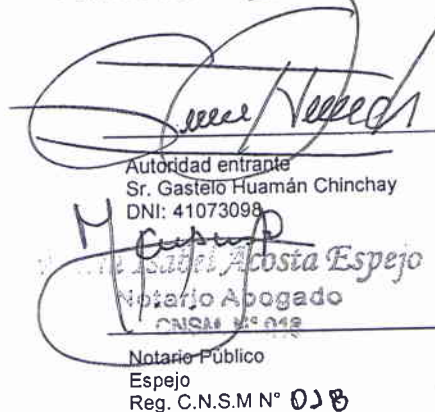 Autoridad entrante
Sr. Gastelo Huamán Chinchay
DNI: 41073098
Isabel Acosta Espejo
Notario Abogado
CNSM N° 018
Notario Público
Espejo
Reg. C.N.S.M N° 018